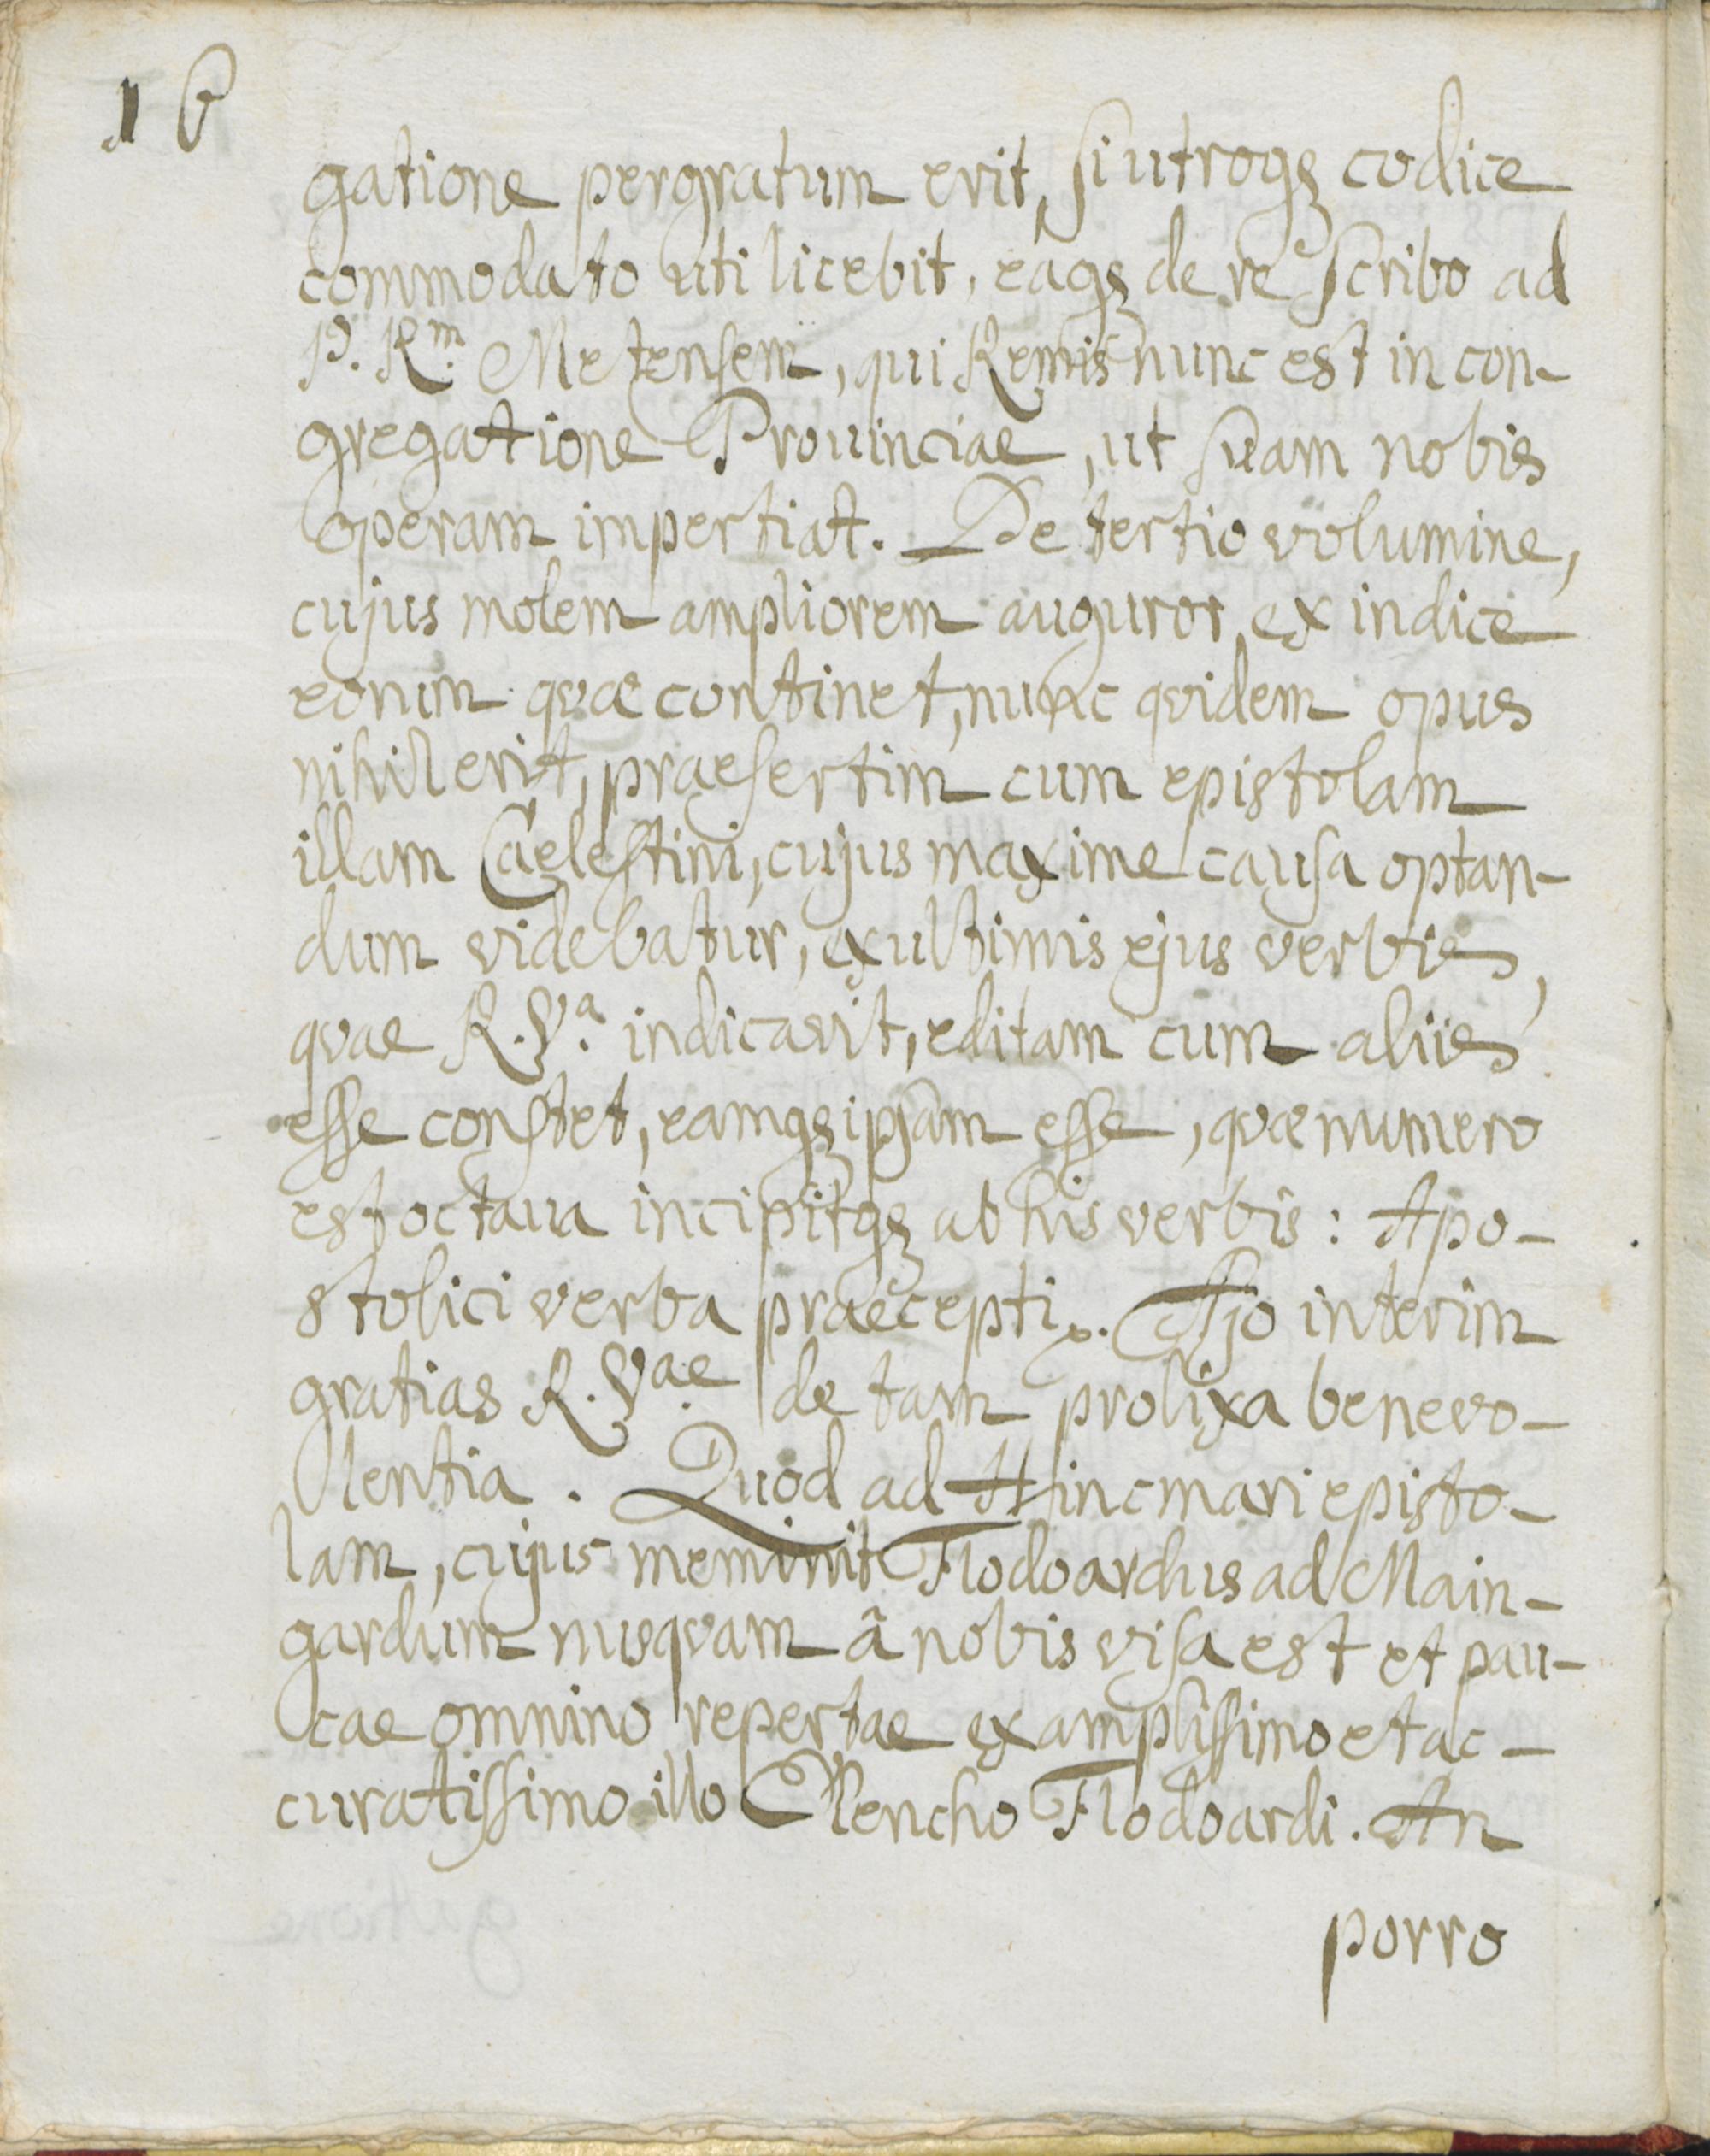 16
gatione pergratum erit, si utroqꝫ codice
commodato uti licebit, eaqꝫ de re scribo ad
P. Rm. Metensem, qui Remis nunc est in con-
gregatione Prouinciae, ut suam nobis
operam impertiat. De tertio volumine,
cujus molem ampliorem auguror ex indice
eorum quae continet, nunc quidem opus
nihil erit, praesertim cum epistolam
illam Caelestini, cujus maxime causa optan-
dum videbatur, ex ultimis ejus verbis,
quae R. Va. indicavit, editam cum aliis
esse constet, eamqꝫ ipsam esse, quae numero
est octaua incipitqꝫ ab his verbis: Apo-
stolici verba praecepti. Ajo interim
gratias R. Vae. de tam prolixa benevo-
lentia. Quod ad Hincmari episto-
lam, cujus meminit Flodoardus ad Main-
gardum nusquam â nobis visa est et pau-
cae omnino repertae ex amplissimo et ac-
curatissimo illo Elencho Flodoardi. An
porro